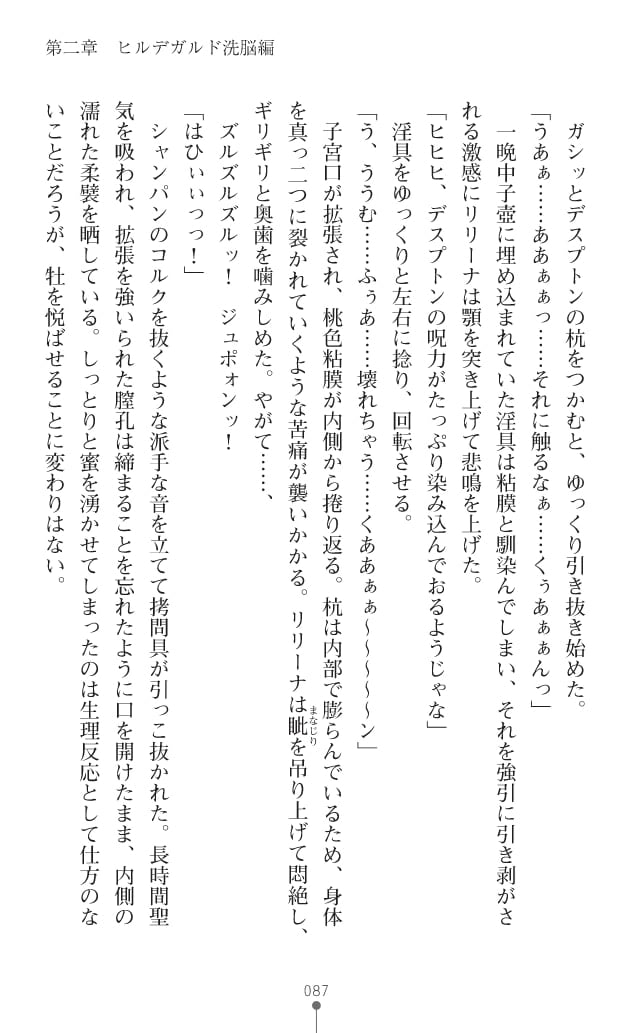 第二章　ヒルデガルド洗脳編
ガシッとデスプトンの杭をつかむと、ゆっくり引き抜き始めた。
「うあぁ……ああぁぁっ……それに触るなぁ……くぅあぁぁんっ」
一晩中子壺に埋め込まれていた淫具は粘膜と馴染んでしまい、それを強引に引き剥がさ
れる激感にリリーナは顎を突き上げて悲鳴を上げた。
「ヒヒヒ、デスプトンの呪力がたっぷり染み込んでおるようじゃな」
淫具をゆっくりと左右に捻り、回転させる。
「う、ううむ……ふぅあ……壊れちゃう……くああぁぁ～～～～～ン」
子宮口が拡張され、桃色粘膜が内側から捲り返る。杭は内部で膨らんでいるため、身体
を真っ二つに裂かれていくような苦痛が襲いかかる。リリーナは眦まなじりを吊り上げて悶絶し、
ギリギリと奥歯を噛みしめた。やがて……、
ズルズルズルッ！　ジュポォンッ！
「はひぃぃっっ！」
シャンパンのコルクを抜くような派手な音を立てて拷問具が引っこ抜かれた。長時間聖
気を吸われ、拡張を強いられた膣孔は締まることを忘れたように口を開けたまま、内側の
濡れた柔襞を晒している。しっとりと蜜を湧かせてしまったのは生理反応として仕方のな
いことだろうが、牡を悦ばせることに変わりはない。
087